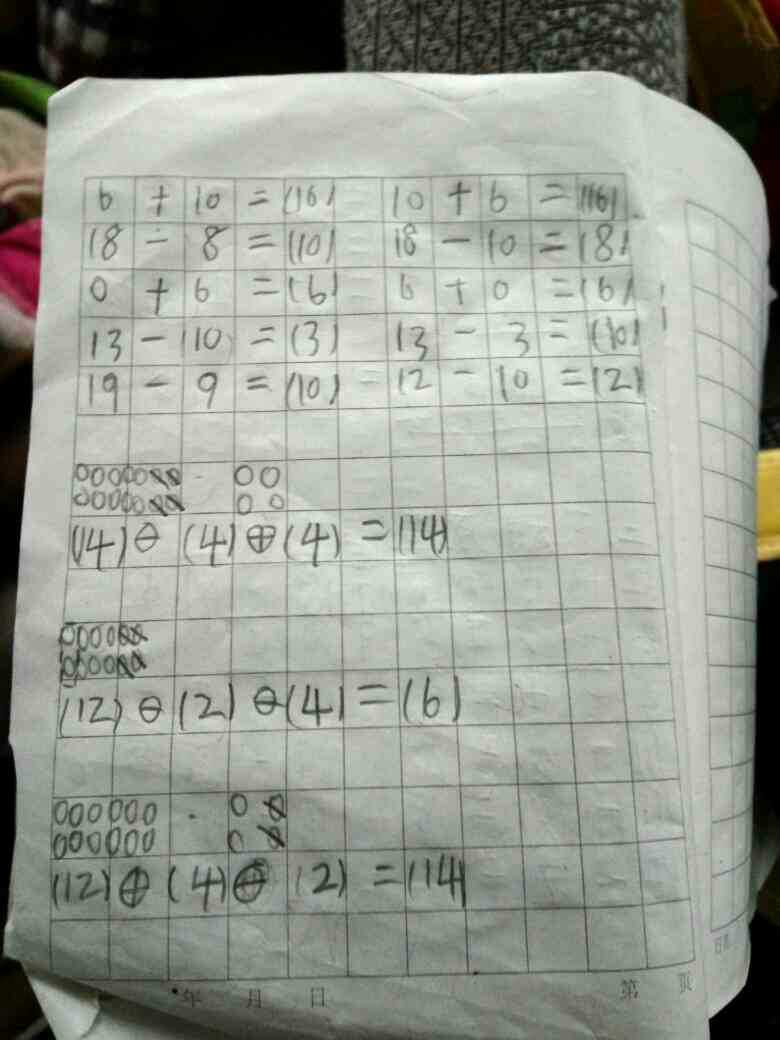 6 + 10 = (16) 10 + 6 = (16)
18 - 8 = (10) 18 - 10 = (8)
0 + 6 = (6) 6 + 0 = (6)
13 - 10 = (3) 13 - 3 = (10)
19 - 9 = (10) 12 - 10 = (2)
(14) ⊖ (4) ⊕ (4) = (14)
(12) ⊖ (2) ⊖ (4) = (6)
(12) ⊕ (4) ⊖ (2) = (14)
年 月 日 第 页